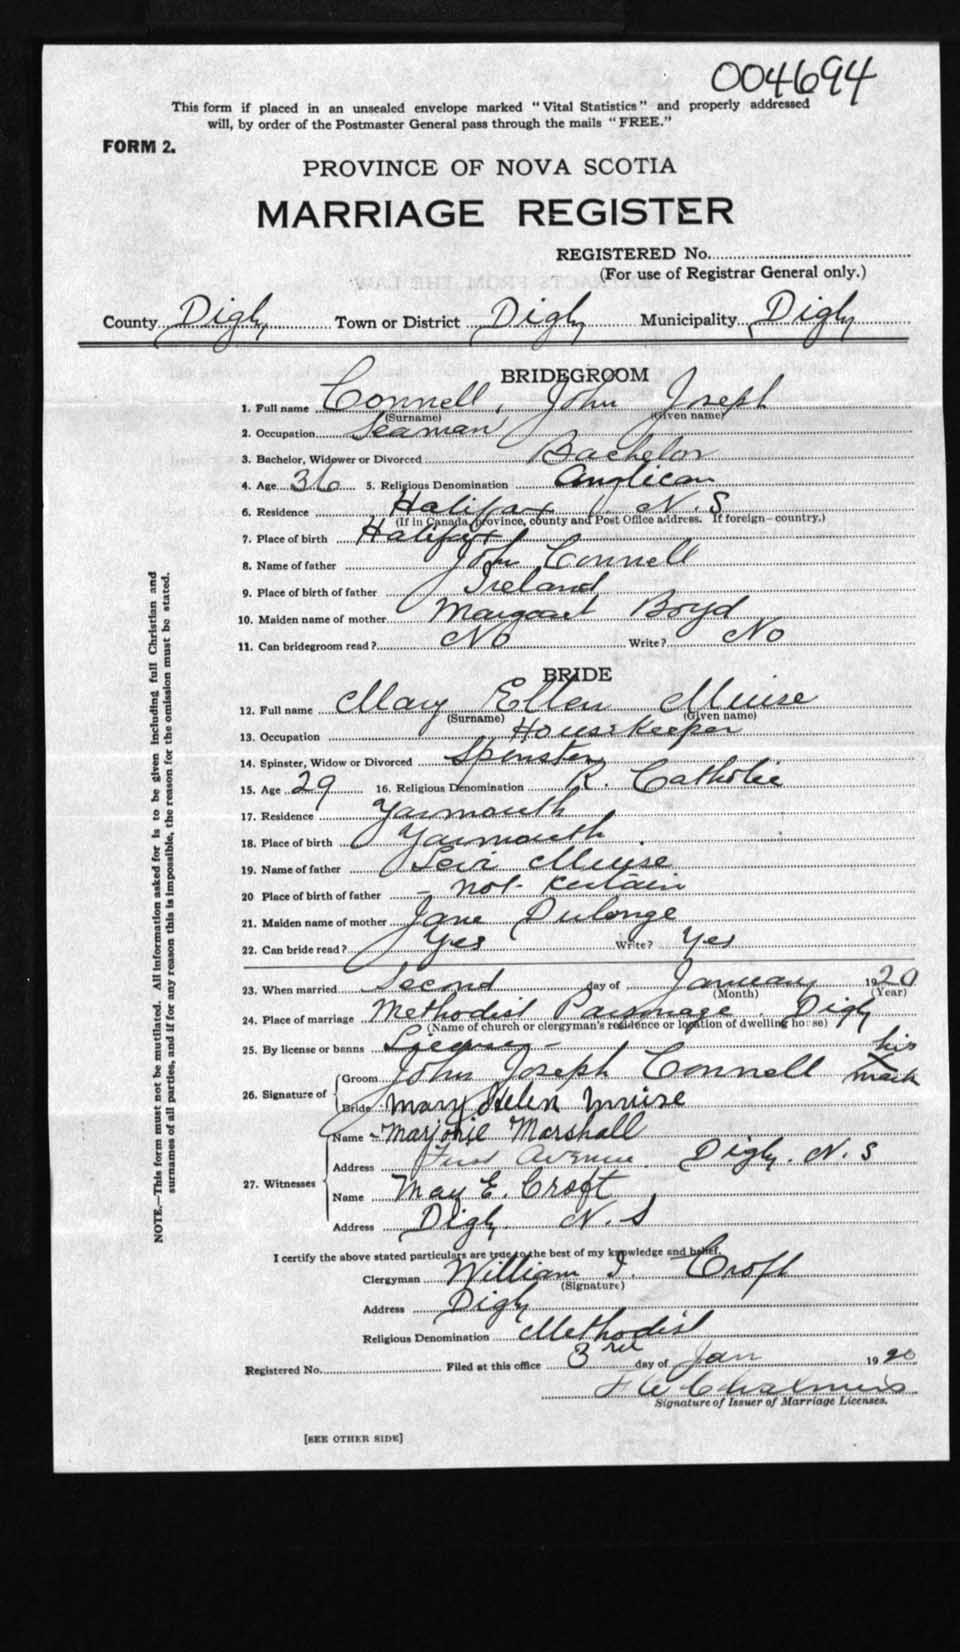 004694
This form if placed in an unsealed envelope marked "Vital Statistics" and properly addressed
will, by order of the Postmaster General pass through the mails "FREE."
FORM 2.
PROVINCE OF NOVA SCOTIA
MARRIAGE REGISTER
REGISTERED No.
(For use of Registrar General only.)
County Digby Town or District Digby Municipality Digby
BRIDEGROOM
1. Full name Connell, John Joseph
(Surname) (Given name)
2. Occupation Seaman
3. Bachelor, Widower or Divorced Bachelor
4. Age 36 5. Religious Denomination Anglican
6. Residence Halifax N. S
(If in Canada, province, county and Post Office address. If foreign—country.)
7. Place of birth Halifax
8. Name of father John Connell
9. Place of birth of father Ireland
10. Maiden name of mother Margaret Boyd
11. Can bridegroom read? No Write? No
BRIDE
12. Full name Mary Ellen Muise
(Surname) (Given name)
13. Occupation Housekeeper
14. Spinster, Widow or Divorced Spinster
15. Age 29 16. Religious Denomination R. Catholic
17. Residence Yarmouth
18. Place of birth Yarmouth
19. Name of father Levi Muise
20 Place of birth of father - not certain
21. Maiden name of mother Jane Dulonge
22. Can bride read? Yes Write? Yes
23. When married Second day of January 1920
(Month) (Year)
24. Place of marriage Methodist Parsonage. Digby
(Name of church or clergyman's residence or location of dwelling house)
25. By license or banns License -
26. Signature of Groom John Joseph Connell his X mark
Bride Mary Helen Muise
27. Witnesses
Name Marjorie Marshall
Address First Avenue. Digby. N. S
Name May E. Croft
Address Digby. N. S
I certify the above stated particulars are true to the best of my knowledge and belief.
Clergyman William I. Croft
(Signature)
Address Digby
Religious Denomination Methodist
Registered No. Filed at this office 3rd day of Jan 1920
Signature of Issuer of Marriage Licenses.
[SEE OTHER SIDE]
NOTE.—This form must not be mutilated. All information asked for is to be given including full Christian and
surnames of all parties, and if for any reason this is impossible, the reason for the omission must be stated.